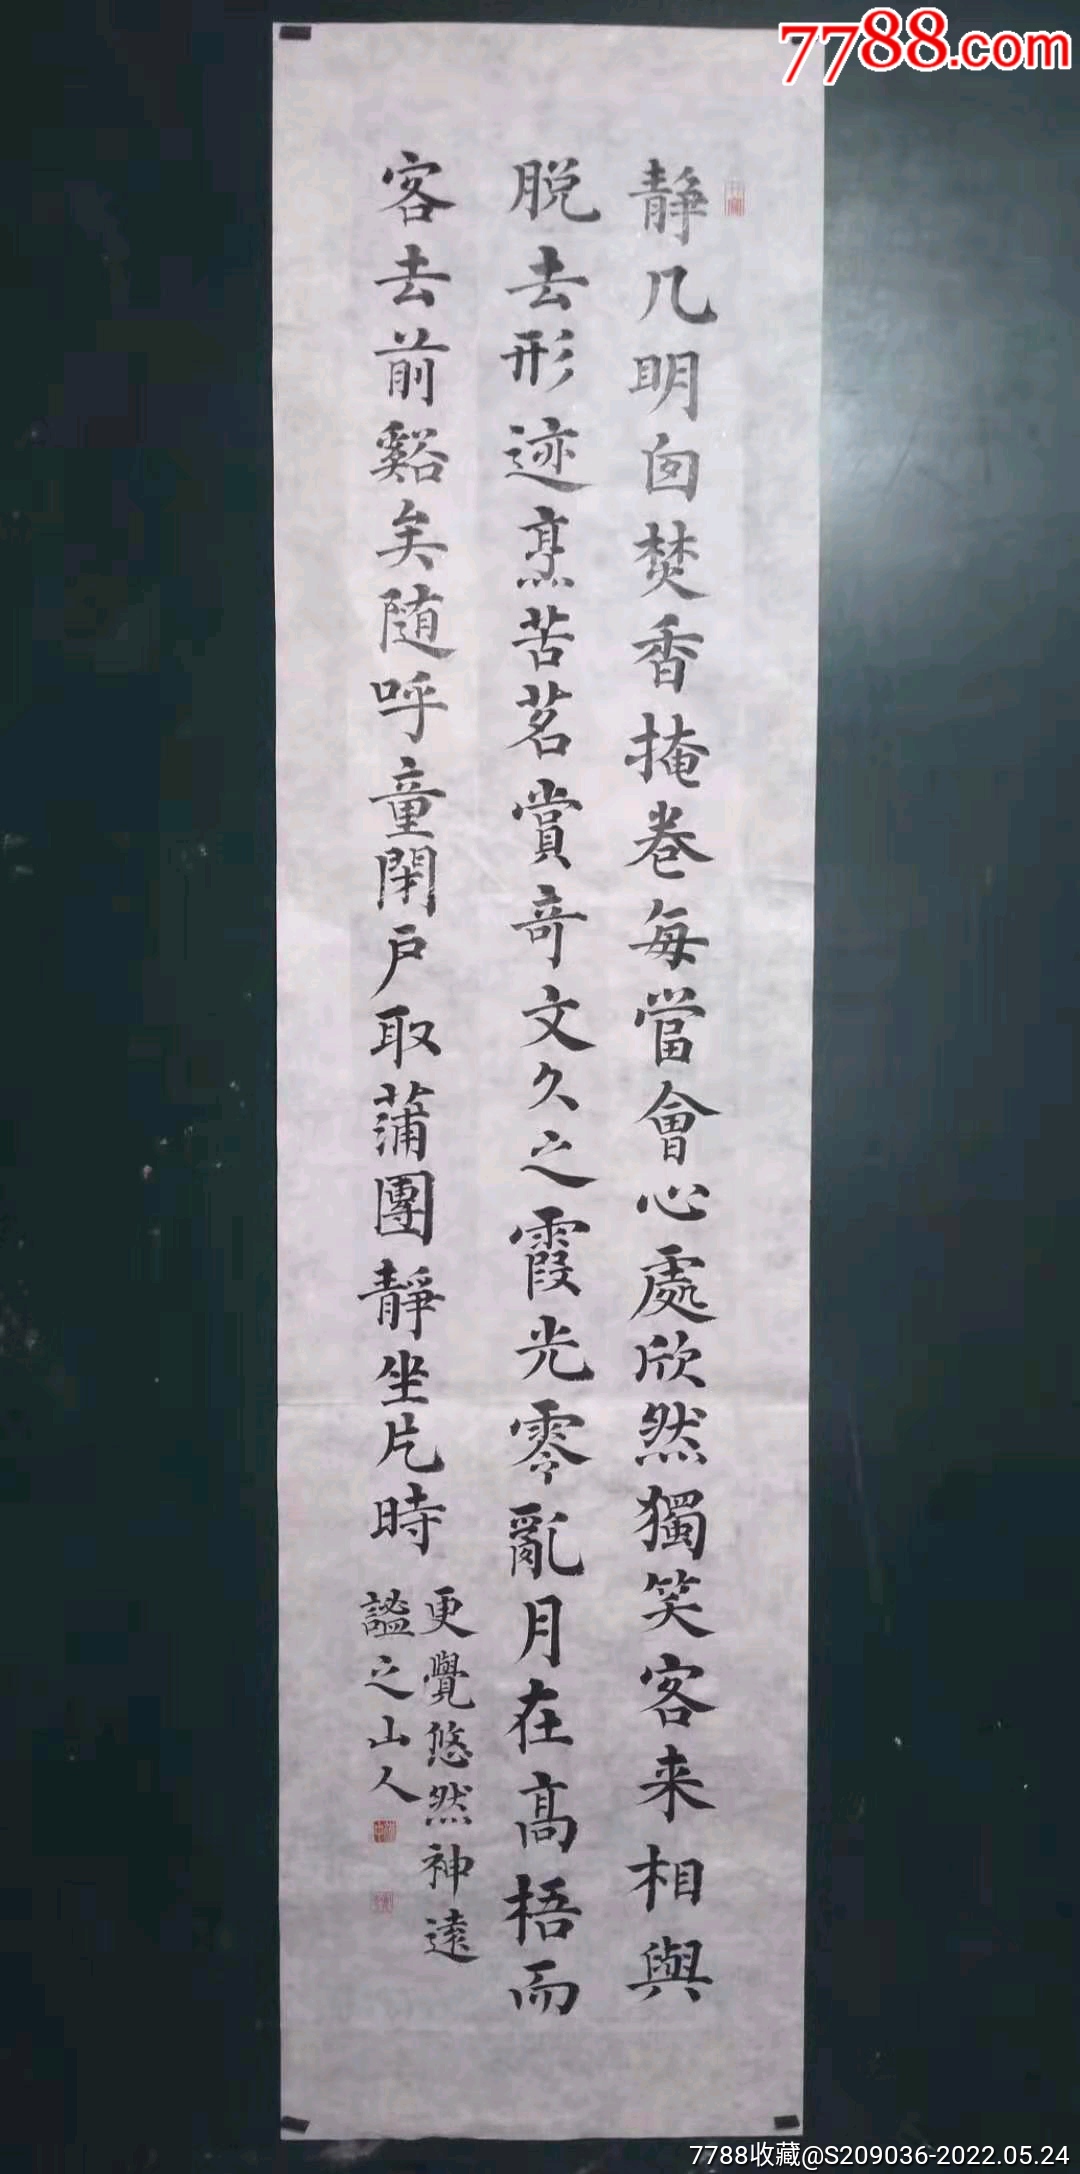 7788.com
静几明囱焚香掩卷每當會心處欣然獨笑客来相與
脱去形迹烹苦茗賞奇文久之霞光零亂月在高梧而
客去前谿矣随呼童閉户取蒲團靜坐片時
更覺悠然神遠
謐之山人
7788收藏@S209036-2022.05.24